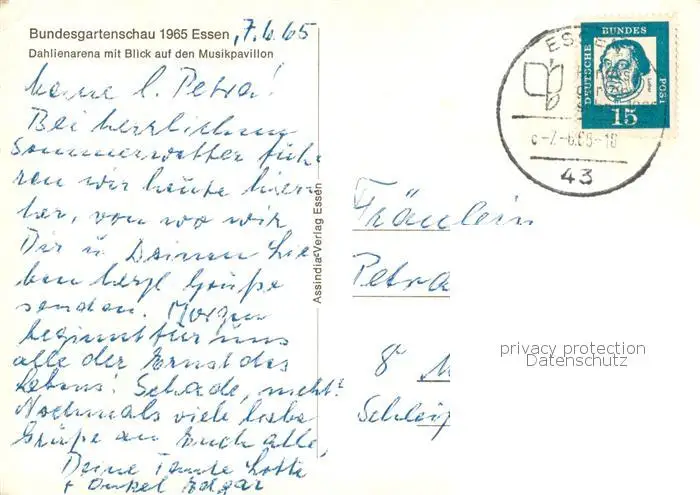 Bundesgartenschau 1965 Essen, 7.6.65
Dahlienarena mit Blick auf den Musikpavillon
Meine l. Petra!
Bei herrlichem
Sommerwetter fuh-
ren wir heute hier
her, von wo wir
Dir u. Deinen Lie-
ben herzl. Grüße
senden. Morgen
beginnt für uns
alle der Ernst des
Lebens! Schade, nicht?
Nochmals viele liebe
Grüße an Euch alle,
Deine Tante Lotte
+ Onkel Edgar
Assindia-Verlag Essen
ESSEN
43
DEUTSCHE BUNDES POST
15
Fräulein
Petra
8 M
privacy protection
Datenschutz